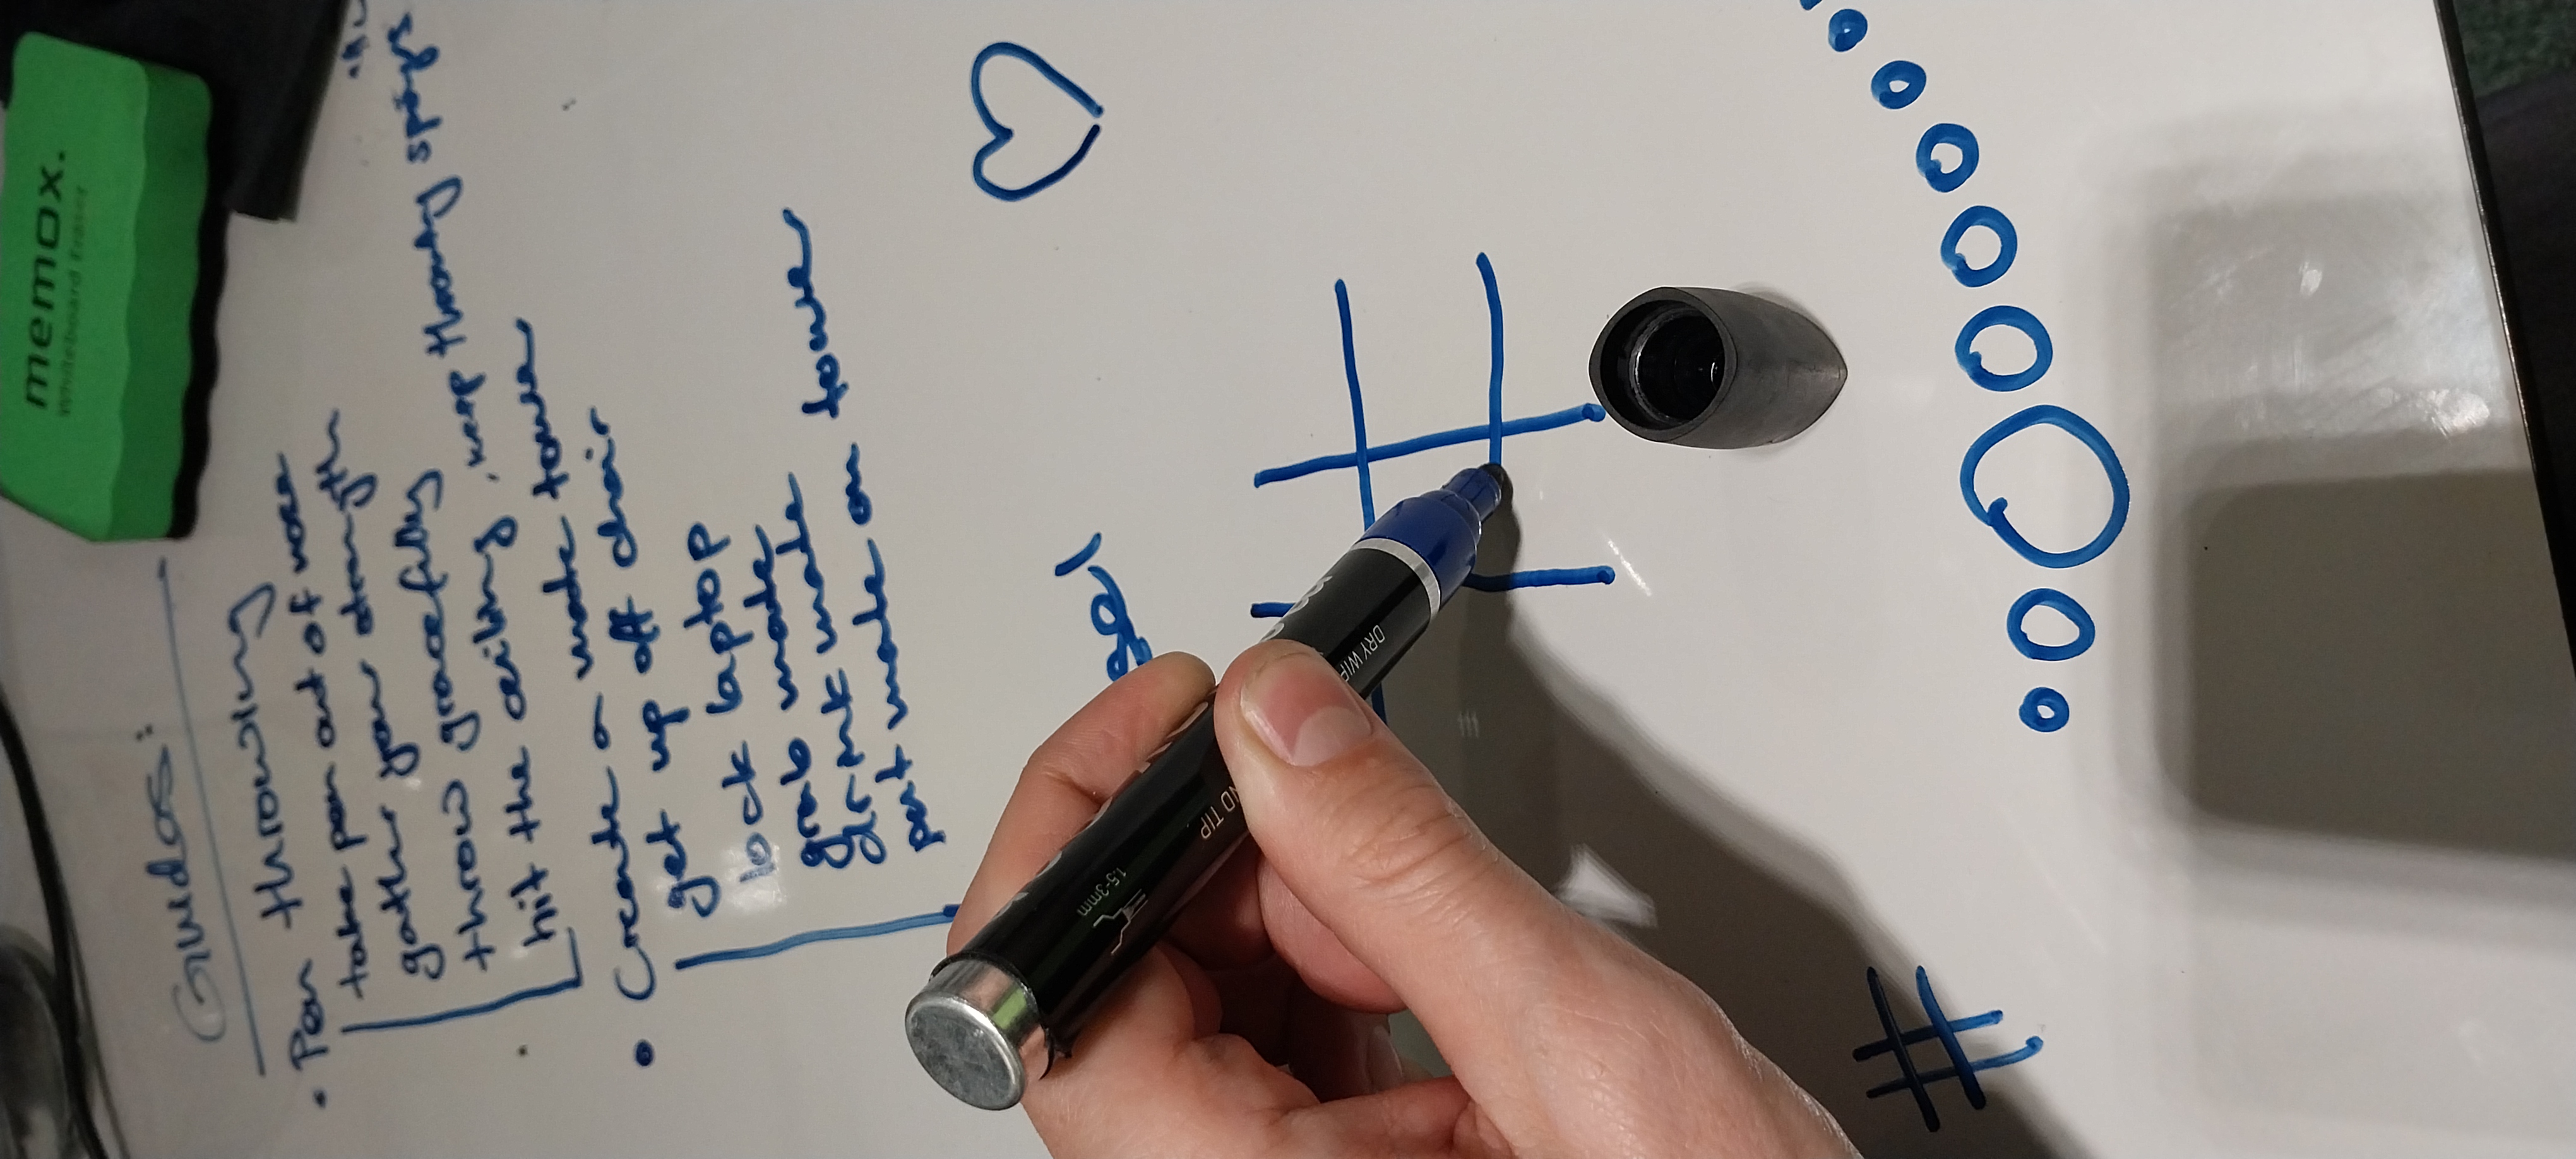 memox.
Whiteboard Eraser
Guidos:
• Pen throwing
take pen out of nose
gather your strength
throw gracefully
hit the ceiling, keep throwing
• Create a mate tower
get up off chair
lock laptop
grab mate
drink mate
put mate on tower
1.5-3mm
TIP
DRY WIP
#